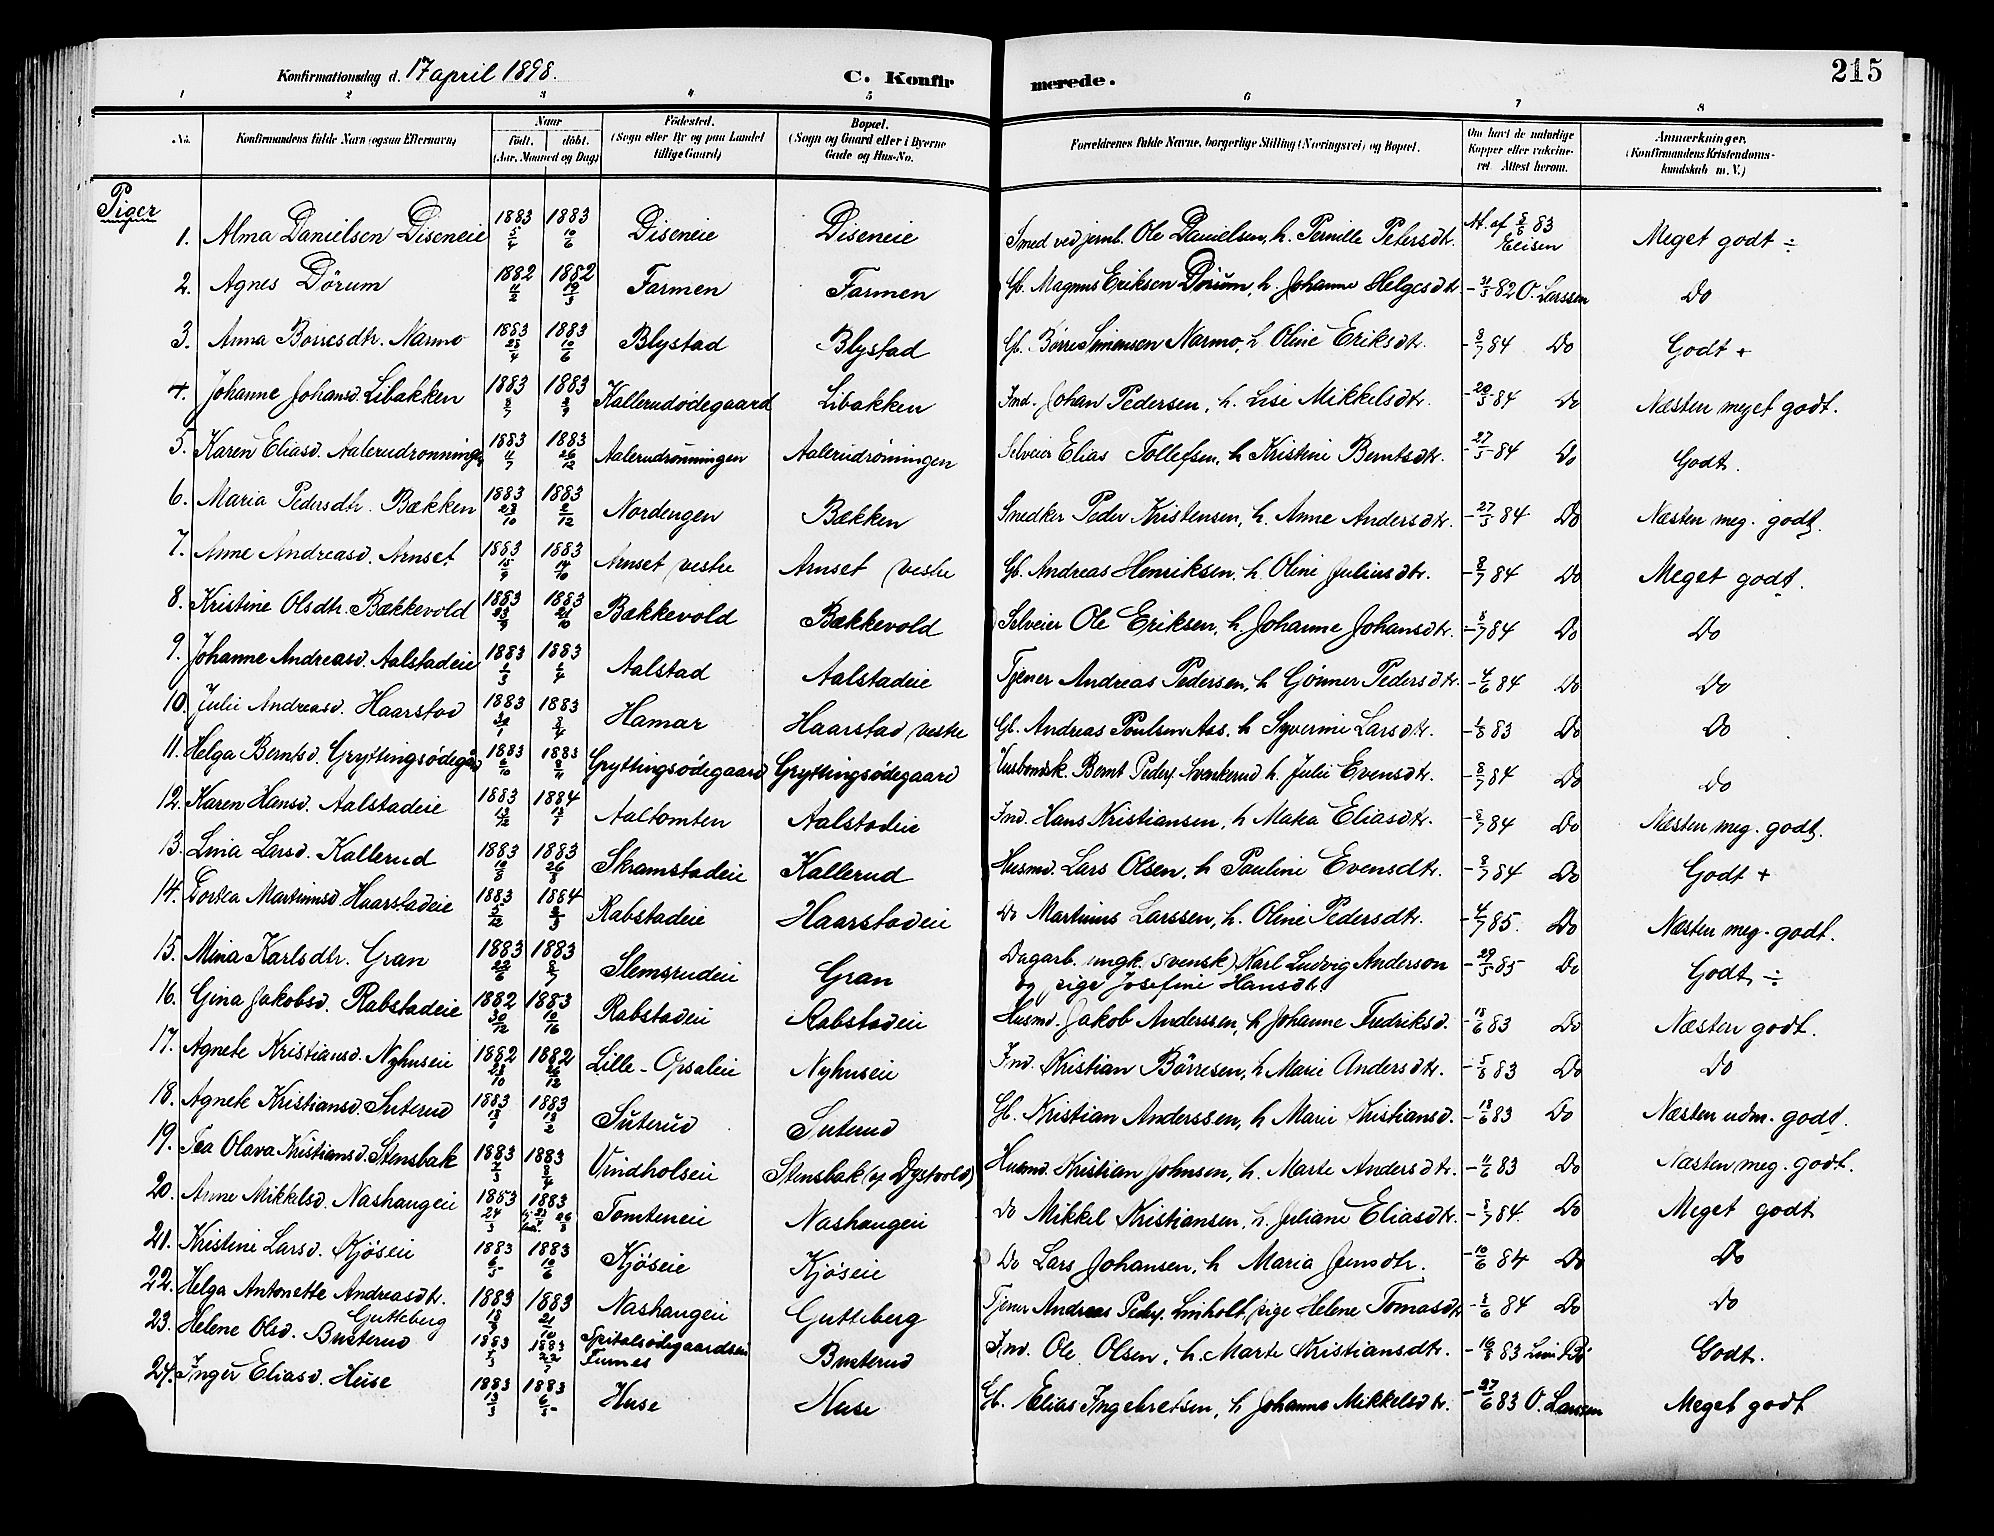 Konfirmationsdag d. 17 april 1898. C. Konfir merede. 215
1 2 3 4 5 6 7 8
No. Konfirmandens fulde Navn (ogsaa Efternavn) Naar født. døbt. (Aar, Maaned og Dag) Fødested. (Sogn eller By og paa Landet tillige Gaard) Bopæl. (Sogn og Gaard eller i Byerne Gade og Hus-No. Forældrenes fulde Navne, borgerlige Stilling (Næringsvei) og Bopæl. Om havt de naturlige Kopper eller vakcineret. Attest herom. Anmærkninger. (Konfirmandens Kristendomskundskab m. V.)
Piger
1. Alma Danielsen Diseneie 1883 5/4 1883 10/6 Diseneie Diseneie Smed ved jernb. Ole Danielsen, h. Pernille Petersdtr. At. af 83 Elisen Meget godt ÷
2. Agnes Dørum 1882 11/2 1882 19/3 Farmen Farmen Gb. Magnus Eriksen Dørum, h. Johanne Helgesdtr. 82 O. Larssen Do
3. Anna Børresdtr. Narmo 1883 23/4 1883 10/6 Blystad Blystad Gb. Børre Simensen Narmo, h. Oline Eriksdtr. - 8/7 84 Do Godt +
4. Johanne Johansd. Libakken 1883 8/7 1883 2/9 Kallerudødegaard Libakken Ind. Johan Pedersen, h. Lise Mikkelsdtr. - 20/5 84 Do Næsten meget godt.
5. Karen Eliasd. Aalerudrønningen 1883 11/7 1883 26/12 Aalerudrønningen Aalerudrønningen Selveier Elias Tollefsen, h Kristine Berntsdtr. - 27/5 84 Do Godt.
6. Maria Pedersdtr. Bækken 1883 23/10 1883 2/12 Nordengen Bækken Snedker Peder Kristensen, h. Anne Andersdtr. - 27/5 84 Do Næsten meg. godt.
7. Anne Andreasd. Arnset 1883 15/9 1883 14/10 Arnset vestre Arnset vestre Gb. Andreas Henriksen, h. Oline Juliusdtr. - 8/7 84 Do Meget godt.
8. Kristine Olsdtr. Bækkevold 1883 23/9 1883 21/10 Bækkevold Bækkevold Selveier Ole Eriksen, h. Johanne Johansdtr. - 8/7 84 Do Do
9. Johanne Andreasd. Aalstadeie 1883 1883 Aalstad Aalstadeie Tjener Andreas Pedersen, h Gønner Pedersdtr. - 4/6 84 Do Do
10. Julie Andreasd. Haarstad 1883 30/1 1883 8/4 Hamar Haarstad vestre Gb. Andreas Poulsen Aas, h Syverine Larsdtr. 83 Do Do
11. Helga Berntsd. Gryttingsødegård 1883 6/10 1883 Gryttingsødegaard Gryttingsødegaard Husbondsk. Bernt Peders. Svenkerud h. Julie Evensdtr. - 8/7 84 Do Do
12. Karen Hansd. Aalstadeie 1883 13/12 1884 13/1 Aaltomten Aalstadeie Ind. Hans Kristiansen, h Maka Eliasdtr. - 8/7 84 Do Næsten meg. godt.
13. Lina Larsd. Kallerud 1883 1883 Skramstadeie Kallerud Husmd. Lars Olsen, h Pauline Evensdtr. - 8/7 84 Do Godt +
14. Dortea Martinusd. Haarstadeie 1883 5/12 1884 2/3 Rabstadeie Haarstadeie Do Martinus Larssen, h. Oline Pedersdtr. - 4/7 85. Do Næsten meg. godt.
15. Mina Karlsdtr. Gran 1883 22/6 1883 8/7 Slemsrudeie Gran Dagarb. ungk. (svensk) Karl Ludvig Anderson
og pige Josefine Hansdtr. - 29/5 85 Do Godt ÷
16. Gina Jakobsd. Rabstadeie 1882 30/12 1883 Rabstadeie Rabstadeie Husmd. Jakob Anderssen, h Johanne Fredriksd. - 13/6 83 Do Næsten godt.
17. Agnete Kristiansd. Nyhuseie 1882 23/10 1882 26/12 Lille-Opsaleie Nyhuseie Ind. Kristian Børresen, h Marie Andersdtr. 83 Do Do
18. Agnete Kristiansd. Suterud 1883 13/1 1883 Suterud Suterud Gb. Kristian Anderssen, h Marie Kristiansd. - 13/6 83 Do Næsten udm. godt.
19. Tea Olava Kristiansd. Stensbak 1883 7/3 1883 8/4 Vindholseie Stensbak (u/ Dystvold) Husmd. Kristian Johnsen, h. Marte Andersdtr. - 11/6 83 Do Næsten meg. godt.
20. Anne Mikkelsd. Nashaugeie 1883 24/3 1883 Tomteneie Nashaugeie Do Mikkel Kristiansen, h. Juliane Eliasdtr. - 8/7 84. Do Meget godt
21. Kristine Larsd. Kjøseie 1883 6/5 1883 10/6 Kjøseie Kjøseie Do Lars Johansen, h Maria Jensdtr. - 10/6 84 Do Do
22. Helga Antonette Andreasdtr.
Gutteberg 1883 1883 21/10 Nashaugeie Gutteberg Tjener Andreas Peders. Linholt, pige Helene Tomasdtr 84 Do Do
23. Helene Olsd. Busterud 1883 1883 Spitalsødegaardseie
Furnes Busterud Ind. Ole Olsen, h. Marte Kristiansdtr. 83 Godt.
24. Inger Eliasd. Huse 1883 13/3 1883 6/5 Huse Huse Gb. Elias Ingebretsen, h Johanne Mikkelsdtr. - 27/6 83 O. Larssen Meget godt